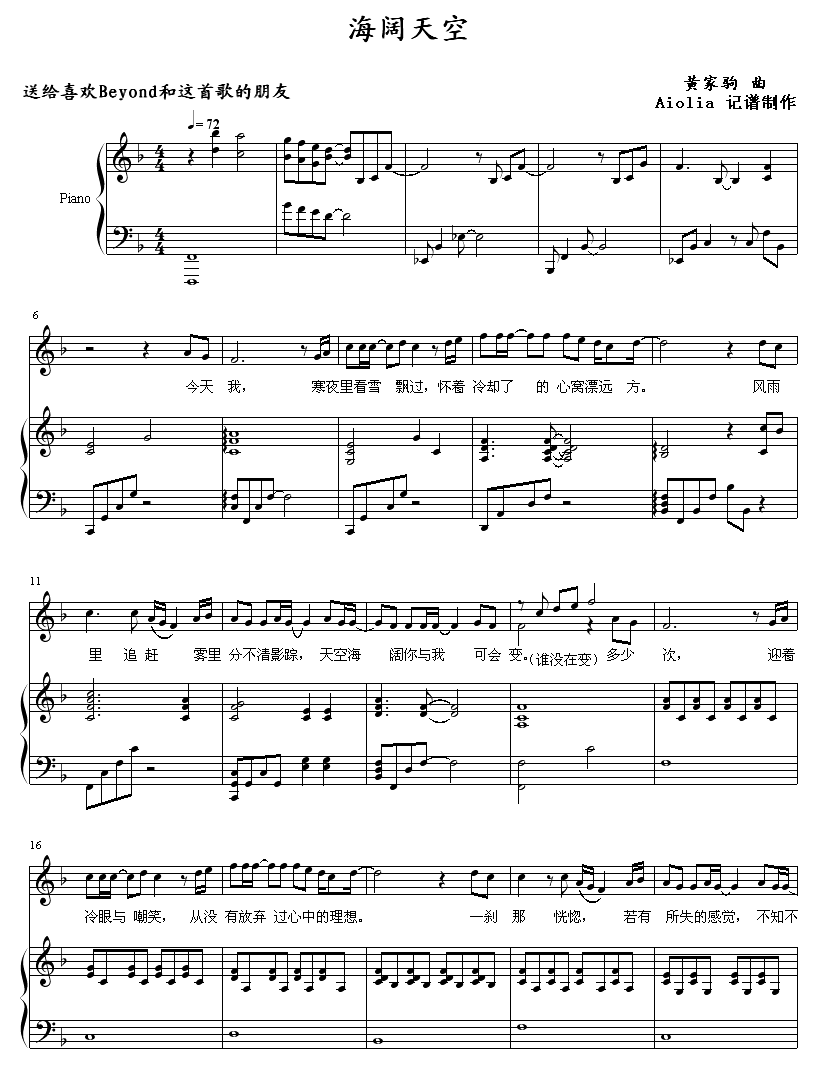 海阔天空
送给喜欢Beyond和这首歌的朋友
黄家驹 曲
Aiolia 记谱制作
= 72
Piano
6
今天 我， 寒夜里看雪 飘过，怀着 冷却了 的 心窝漂远 方。 风雨
11
里 追 赶 雾里 分不清影踪， 天空海 阔你与我 可会 变。(谁没在变) 多少 次， 迎着
16
冷眼与 嘲笑， 从没 有放弃 过心中的理想。 一刹 那 恍惚， 若有 所失的感觉，不知不